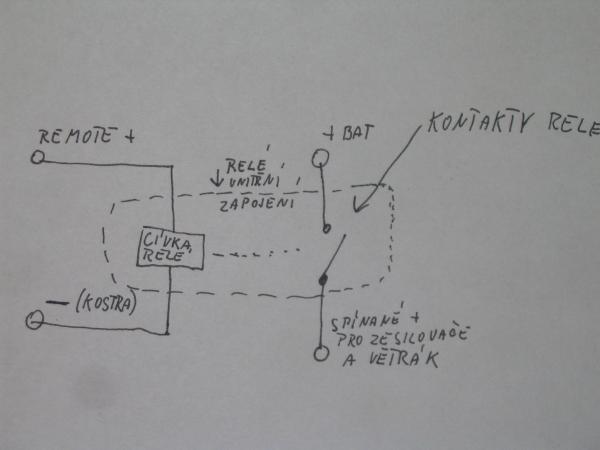 REMOTE +
+ BAT
KONTAKTY RELE
RELÉ
VNITŘNÍ
ZAPOJENÍ
CÍVKA
RELÉ
– (KOSTRA)
SPÍNANÉ +
PRO ZESILOVAČE
A VĚTRÁK